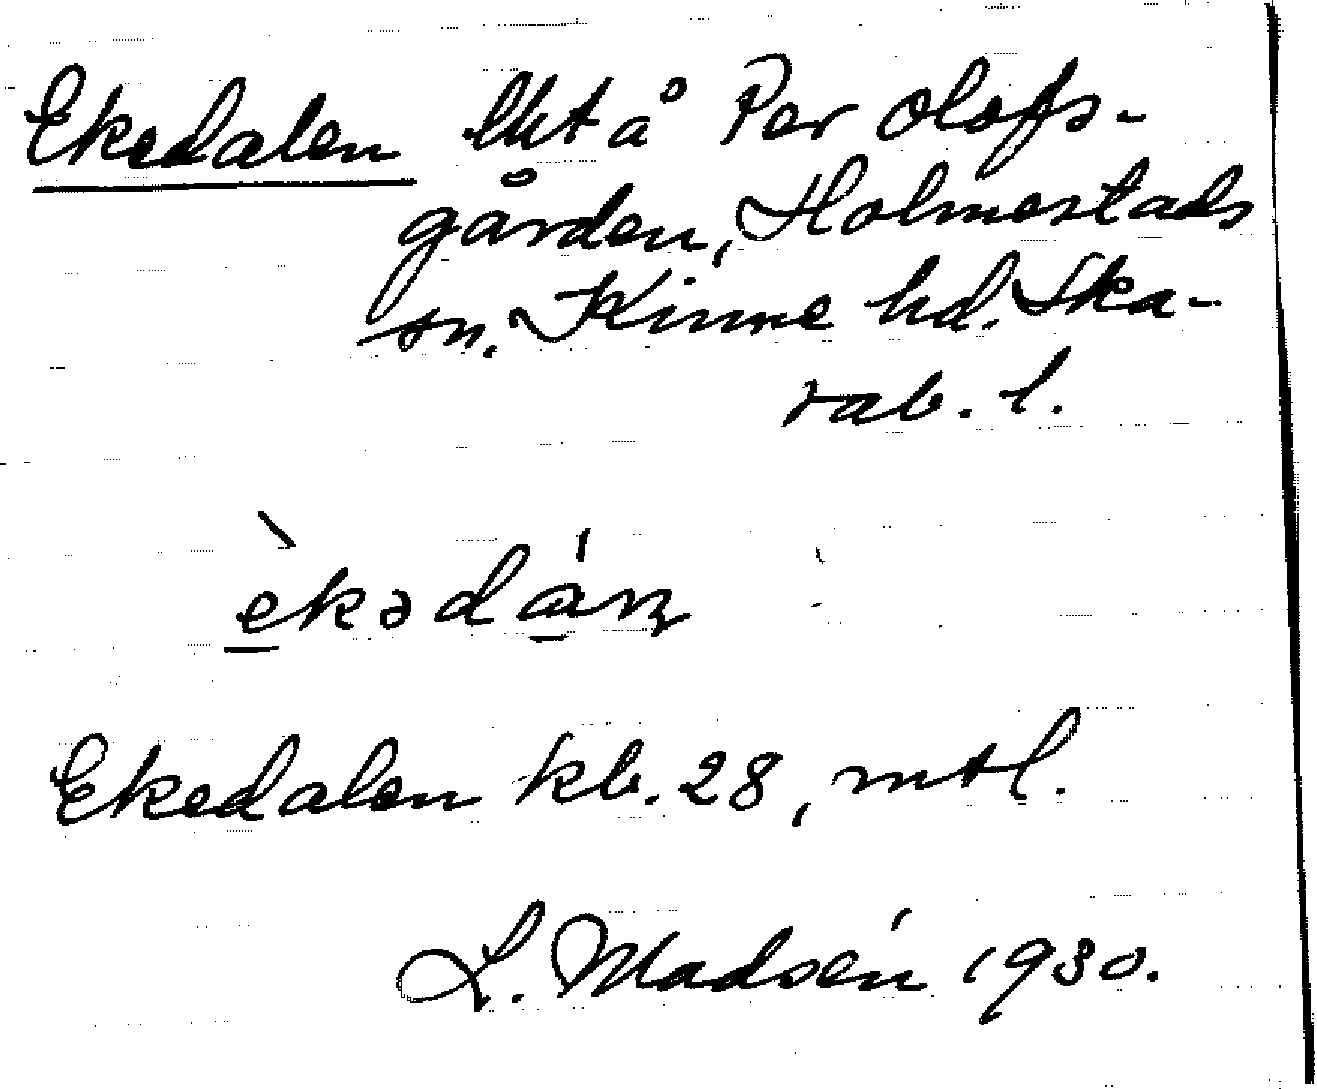 Ekedalen lht å Per Olofs-
gården, Holmestads
sn. Kinne hd. Ska-
rab. l.
èkədán
Ekedalen kb. 28, mtl.
L. Madsén 1930.